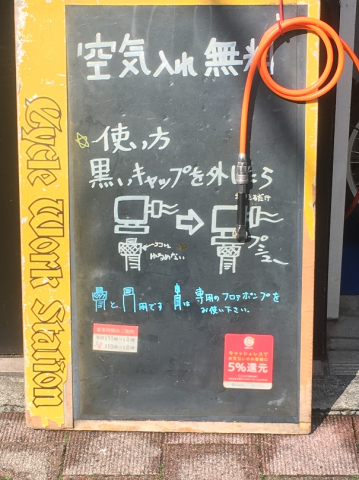 空気入れ 無料
Cycle Work Station
使い方
黒いキャップを外したら
ココは
ゆるめない
プシュー
と 用です
は 専用のフロアポンプを
お使い下さい。
キャッシュレスで
5%還元